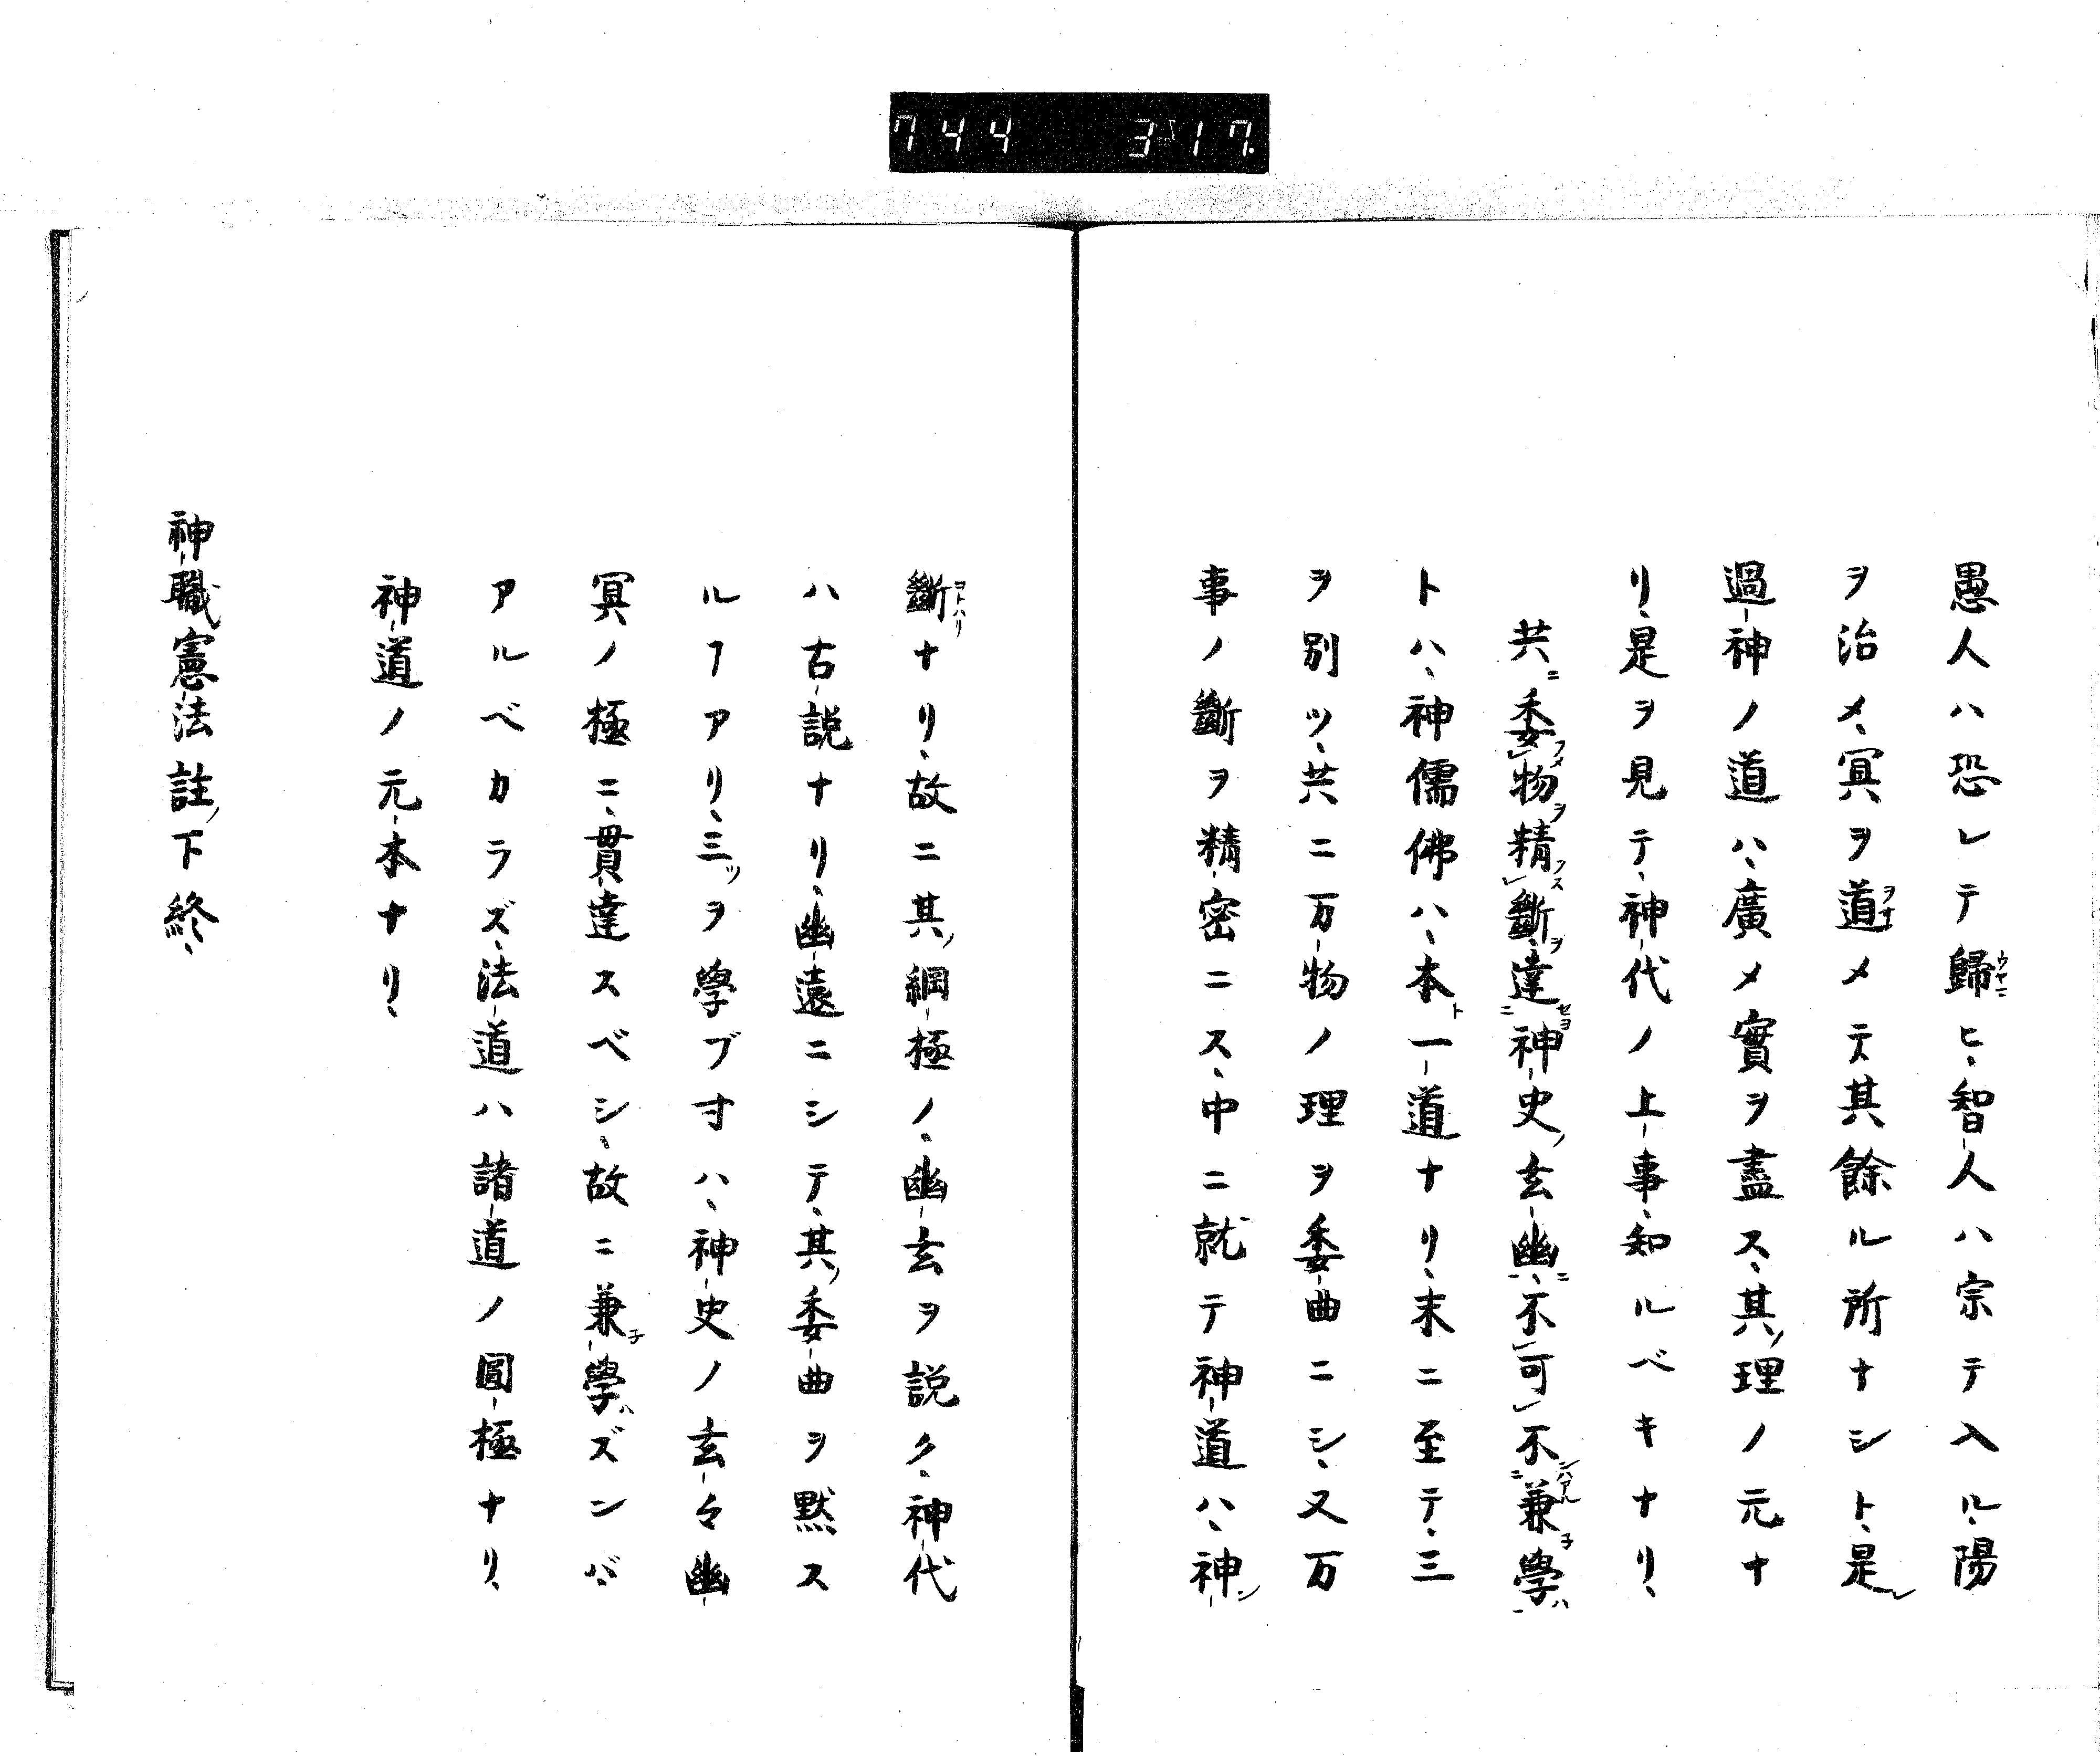 744 317.
愚人ハ恐レテ歸ヒ、智人ハ宗テ入ル、陽
ヲ治メ、冥ヲ道メテ其餘ル所ナシト、是レ
過神ノ道ハ、廣メ實ヲ盡ス、其ノ理ノ元ナ
リ、是ヲ見テ、神代ノ上事、知ルベキナリ、
共ニ委物ヲ精斷ヲ達神史ノ玄幽ニ不可不兼學
トハ、神儒佛ハ、本ト一道ナリ、末ニ至テ、三
ヲ別ツ、共ニ万物ノ理ヲ委曲ニシ、又万
事ノ斷ヲ精密ニス、中ニ就テ神道ハ、神ン
斷ナリ、故ニ其ノ綱極ノ、幽玄ヲ説ク、神代
ハ古説ナリ、幽遠ニシテ、其ノ委曲ヲ黙ス
ルヿアリ、三ツヲ學ブ寸ハ、神史ノ玄々幽
冥ノ極ニ、貫達スベシ、故ニ兼子學ハズンバ、
アルベカラズ、法道ハ諸道ノ圓極ナリ、
神道ノ元本ナリ、
神職憲法註ノ下終、